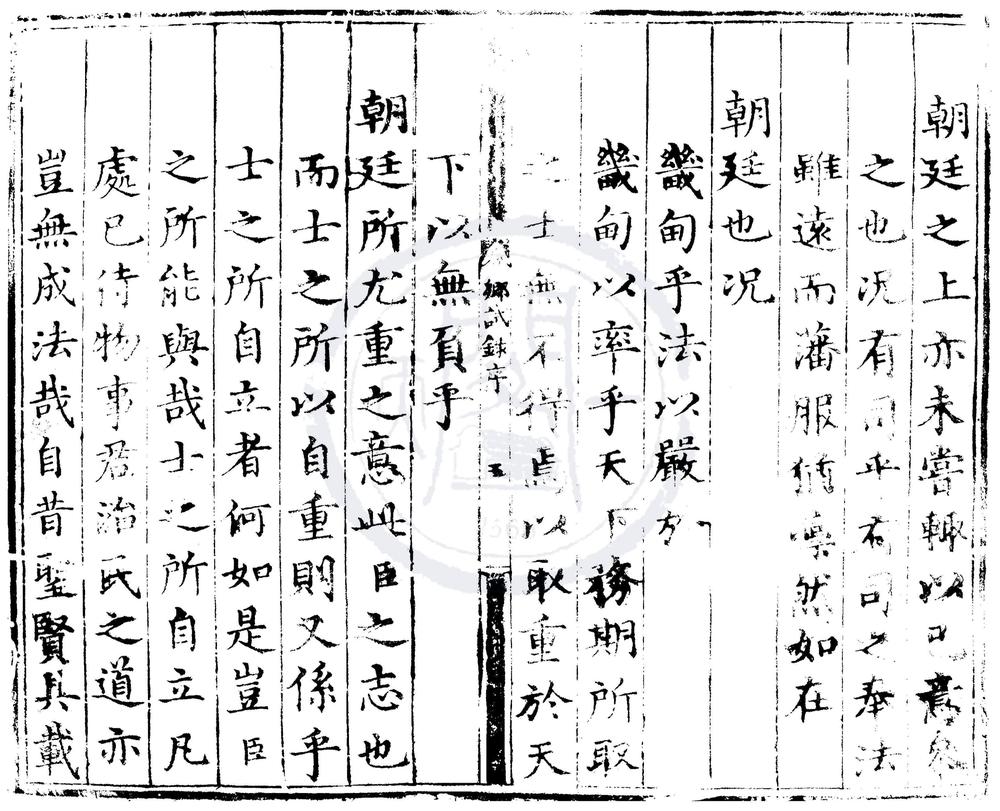 朝廷之上亦未嘗輒以己意參
之也况有司乎有司之奉法
雖遠而藩服猶凜然如在
朝廷也况
畿甸乎法以嚴於
畿甸以率乎天下務期所取
之士無不得焉以取重於天
鄉試錄序
五
下以無負乎
朝廷所尤重之意此臣之志也
而士之所以自重則又係乎
士之所自立者何如是豈臣
之所能與哉士之所自立凡
處已待物事君治民之道亦
豈無成法哉自昔聖賢具載